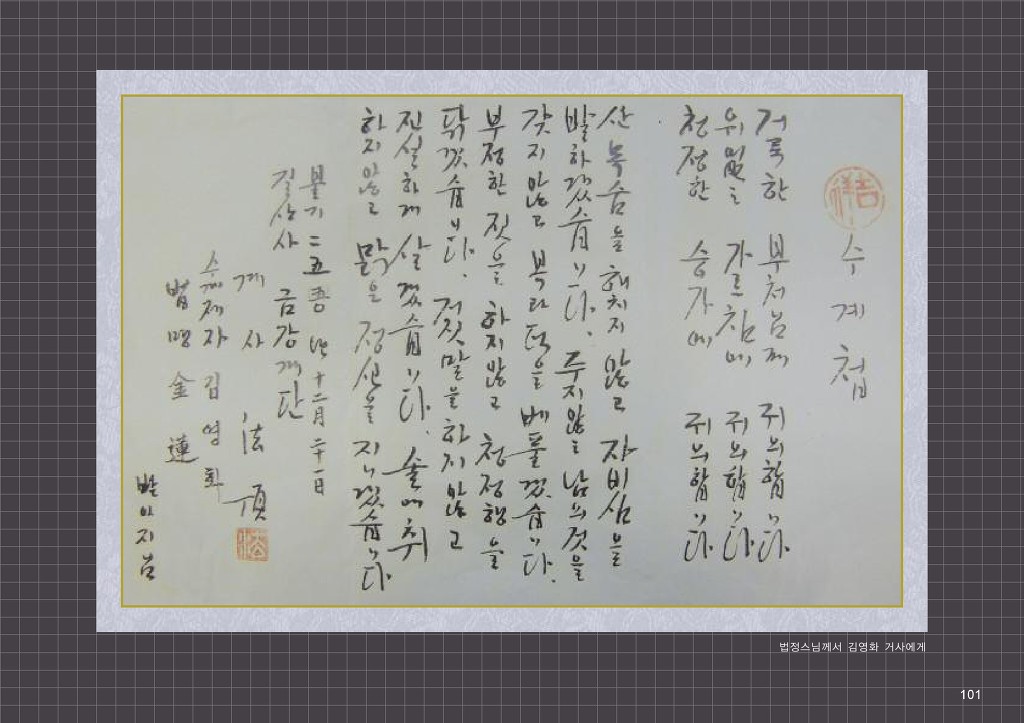 吉祥
수계첩
거룩한 부처님께 귀의합니다
위없는 가르침에 귀의합니다
청정한 승가에 귀의합니다
산 목숨을 해치지 않고 자비심을
발하겠습니다. 주지않는 남의것을
갖지 않고 복과 덕을 베풀겠습니다.
부정한 짓을 하지않고 청정행을
닦겠습니다. 거짓말을 하지 않고
진실하게 살겠습니다. 술에 취
하지 않고 맑은 정신을 지니겠습니다
불기 년 十二月 二十一日
길상사 금강계단
계사 法頂
수계제자 김영화
법명 金蓮
받아지님
법정스님께서 김영화 거사에게
101